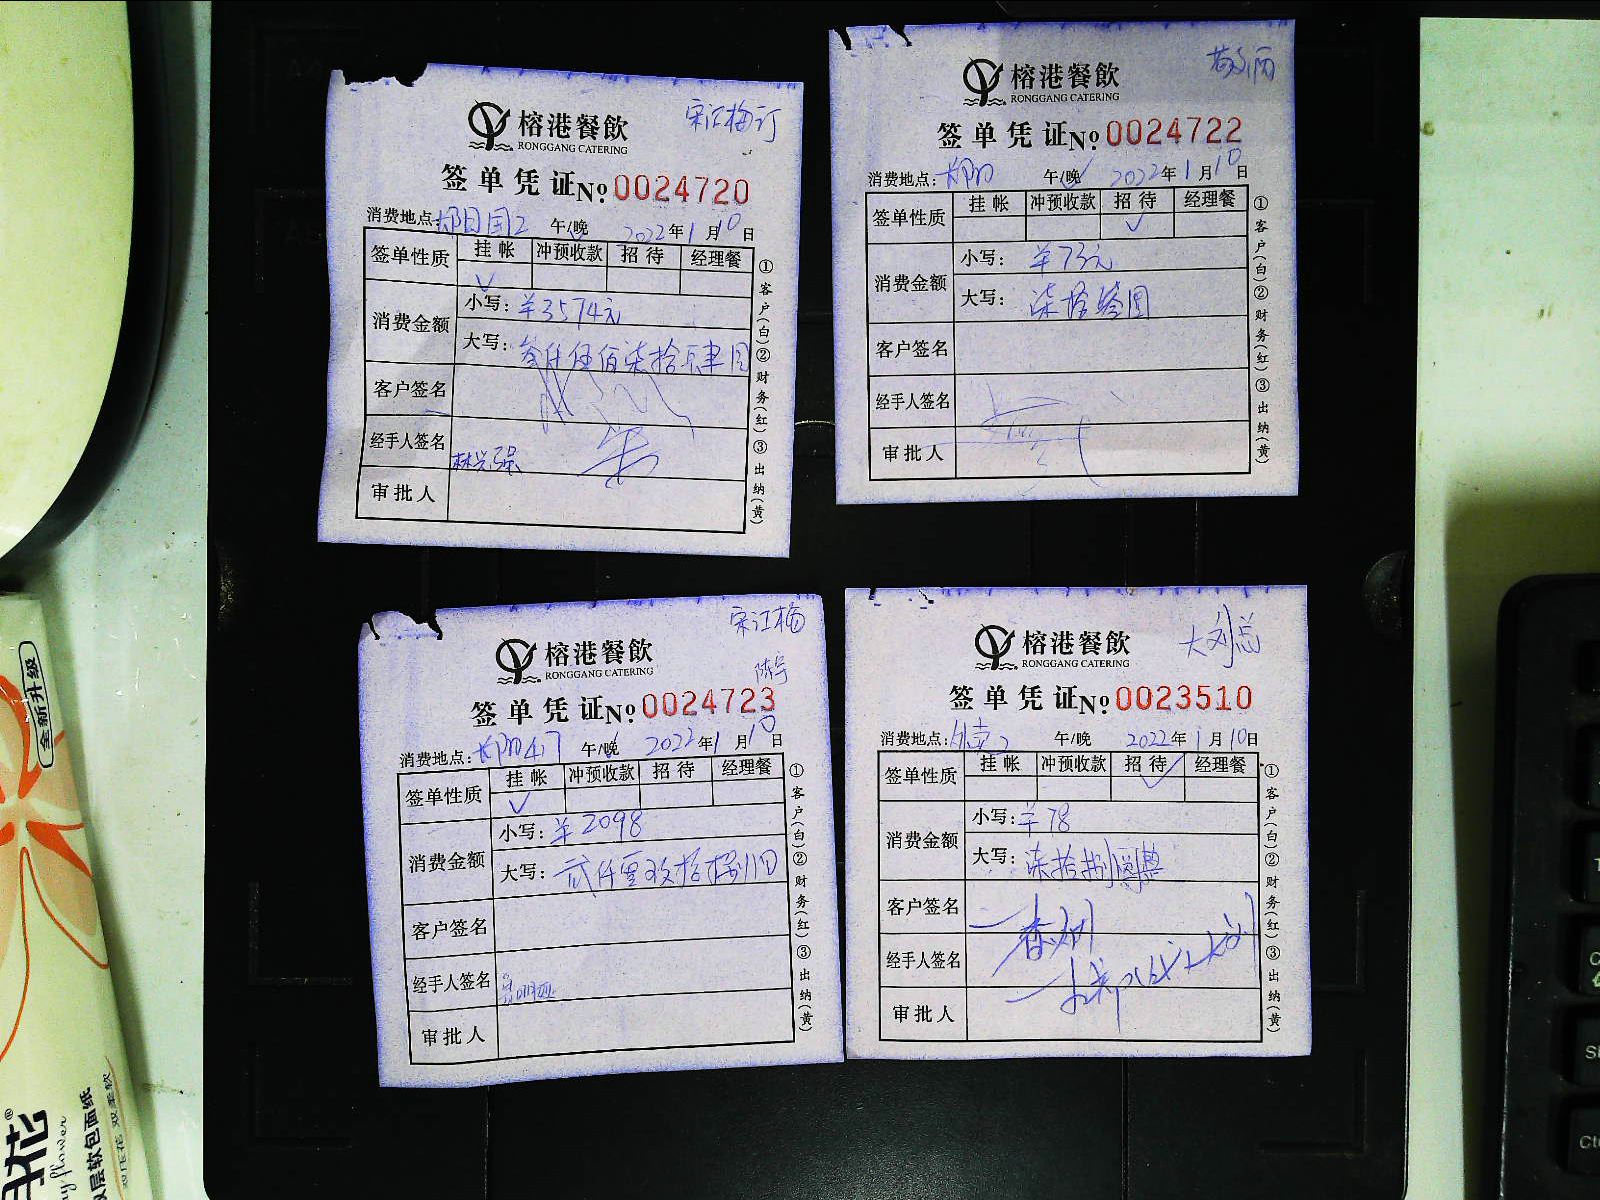 宋江梅订
榕港餐飲
RONGGANG CATERING
签单凭证№0024720
消费地点: 午/晚 2022年1月10日
签单性质 挂帐 冲预收款 招待 经理餐
✓
消费金额 小写: ¥3574元
大写: 叁仟伍佰柒拾肆圆
客户签名
经手人签名 林兴强
审批人
①客户(白)②财务(红)③出纳(黄)
榕港餐飲
RONGGANG CATERING
签单凭证№0024722
消费地点: 午/晚 2022年1月10日
签单性质 挂帐 冲预收款 招待 经理餐
✓
消费金额 小写: ¥73元
大写: 柒拾叁圆
客户签名
经手人签名
审批人
①客户(白)②财务(红)③出纳(黄)
宋江梅
陈宇
榕港餐飲
RONGGANG CATERING
签单凭证№0024723
消费地点: 午/晚 2022年1月10日
签单性质 挂帐 冲预收款 招待 经理餐
✓
消费金额 小写: ¥2098
大写: 贰仟零玖拾捌圆
客户签名
经手人签名
审批人
①客户(白)②财务(红)③出纳(黄)
大刘总
榕港餐飲
RONGGANG CATERING
签单凭证№0023510
消费地点: 外卖2 午/晚 2022年1月10日
签单性质 挂帐 冲预收款 招待 经理餐
✓
消费金额 小写: ¥78
大写: 柒拾捌圆整
客户签名
经手人签名
审批人
①客户(白)②财务(红)③出纳(黄)
全新升级
双层软包面纸